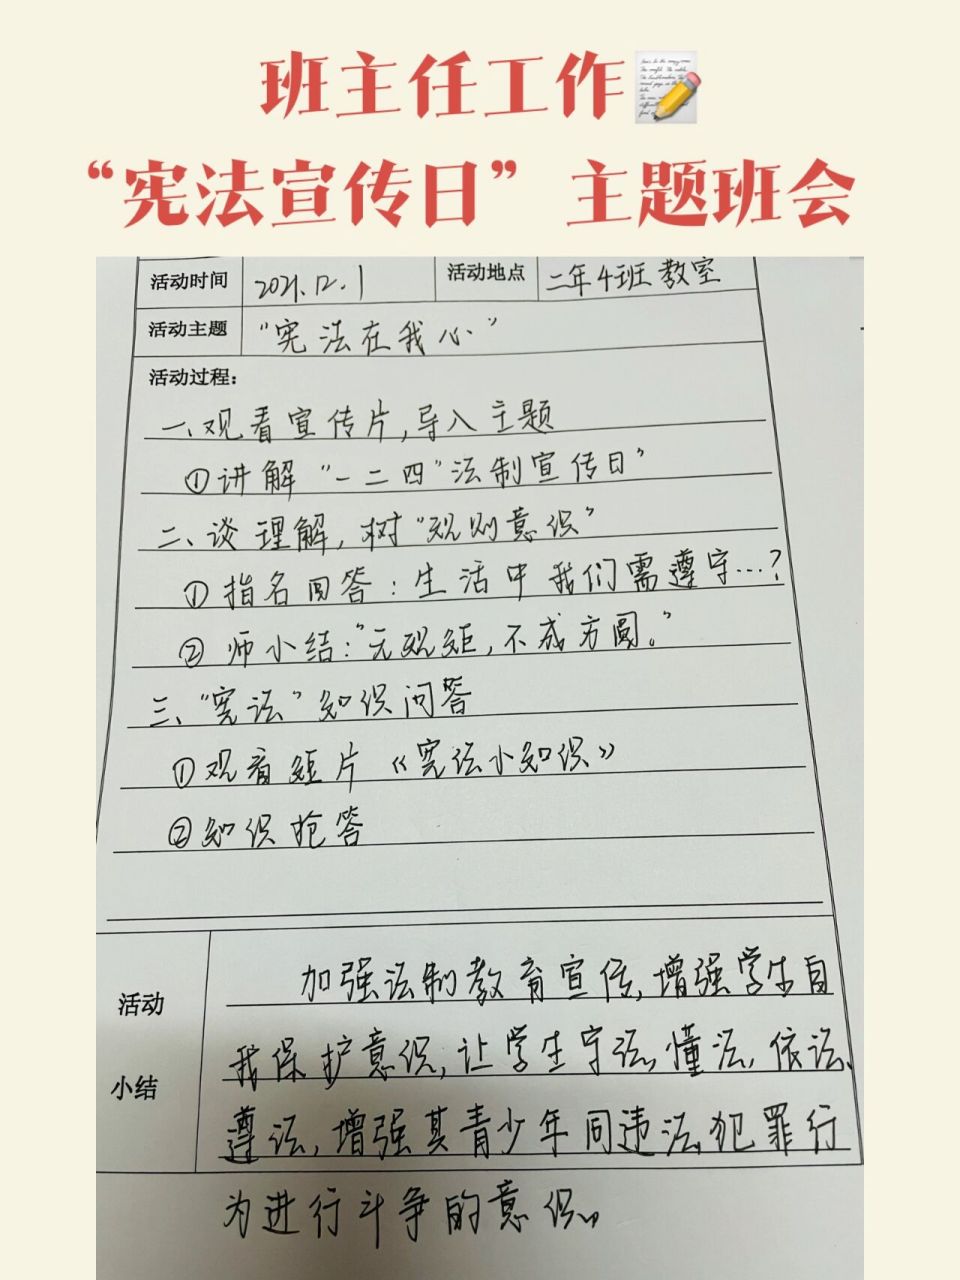 班主任工作
“宪法宣传日”主题班会
活动时间 2021.12.1 活动地点 二年4班教室
活动主题 “宪法在我心”
活动过程：
一、观看宣传片,导入主题
①讲解“一二四”法制宣传日”
二、谈理解,树“规则意识”
①指名回答:生活中我们需遵守…?
②师小结:“无规矩,不成方圆。”
三、“宪法”知识问答
①观看短片《宪法小知识》
②知识抢答
活动
小结
加强法制教育宣传,增强学生自
我保护意识,让学生守法,懂法,依法、
遵法,增强其青少年同违法犯罪行
为进行斗争的意识。